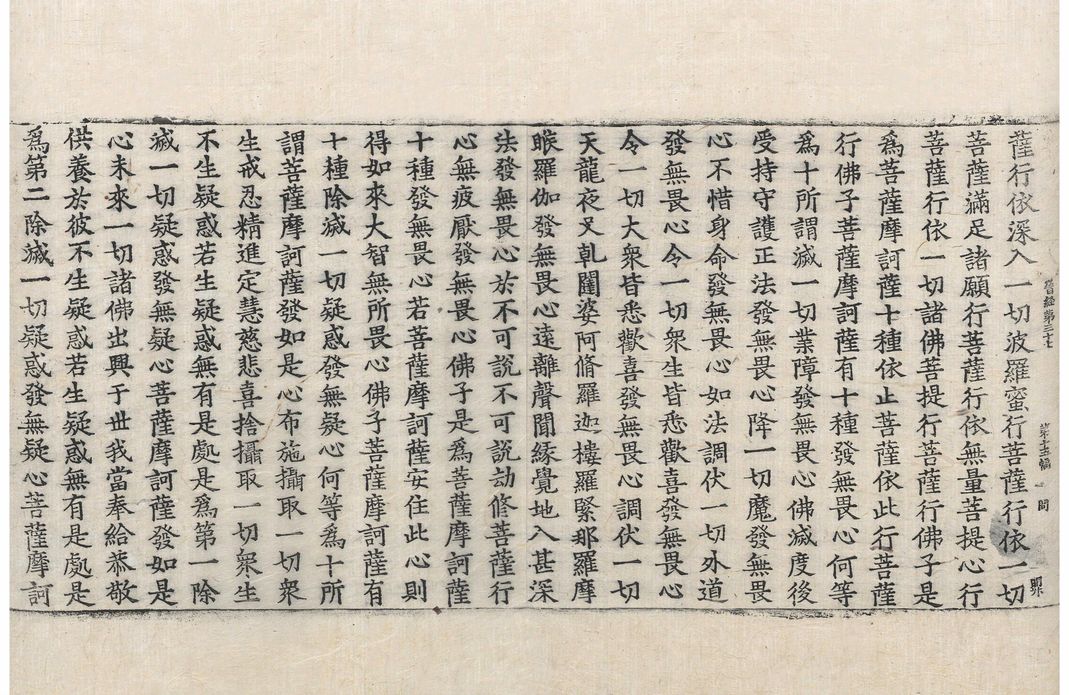 晉經第三十七
薩行依深入一切波羅蜜行菩薩行依一切
菩薩滿足諸願行菩薩行依無量菩提心行
菩薩行依一切諸佛菩提行菩薩行佛子是
爲菩薩摩訶薩十種依止菩薩依此行菩薩
行佛子菩薩摩訶薩有十種發無畏心何等
爲十所謂滅一切業障發無畏心佛滅度後
受持守護正法發無畏心降一切魔發無畏
心不惜身命發無畏心如法調伏一切外道
發無畏心令一切衆生皆悉歡喜發無畏心
令一切大衆皆悉歡喜發無畏心調伏一切
天龍夜叉乹闥婆阿脩羅迦樓羅緊那羅摩
睺羅伽發無畏心遠離聲聞緣覺地入甚深
法發無畏心於不可說不可說劫脩菩薩行
心無疲厭發無畏心佛子是爲菩薩摩訶薩
十種發無畏心若菩薩摩訶薩安住此心則
得如來大智無所畏心佛子菩薩摩訶薩有
十種除滅一切疑惑發無疑心何等爲十所
謂菩薩摩訶薩發如是心布施攝取一切衆
生戒忍精進定慧慈悲喜捨攝取一切衆生
不生疑惑若生疑惑無有是處是爲第一除
滅一切疑惑發無疑心菩薩摩訶薩發如是
心未來一切諸佛出興于世我當奉給恭敬
供養於彼不生疑惑若生疑惑無有是處是
爲第二除滅一切疑惑發無疑心菩薩摩訶